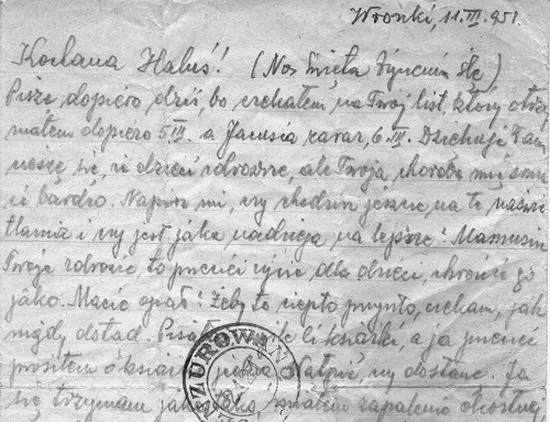 Wronki, 11.III.951.
Kochana Haluś! (Nos Święta
Piszę dopiero dziś, bo czekałem na Twój list, który otrzy-
małem dopiero 5 III. a Jacusia zaraz, 6. III. Dziękuję Wam,
cieszę się, że dzieci zdrowsze, ale Twoja choroba mię smu-
ci bardzo. Napisz mi, czy chodzisz jeszcze na te naświe-
tlania i czy jest jaka nadzieja na lepsze? Mamusiu
Twoje zdrowie to przecież życie dla dzieci, chrońże go
jako. Macie opał? Żeby to ciepło przyszło, czekam, jak
nigdy dotąd. książki, a ja przecież
prosiłem o czy dostanę. Ja
się trzymam jako tako, miałem zapalenie okostnej,
CENZUROWANO